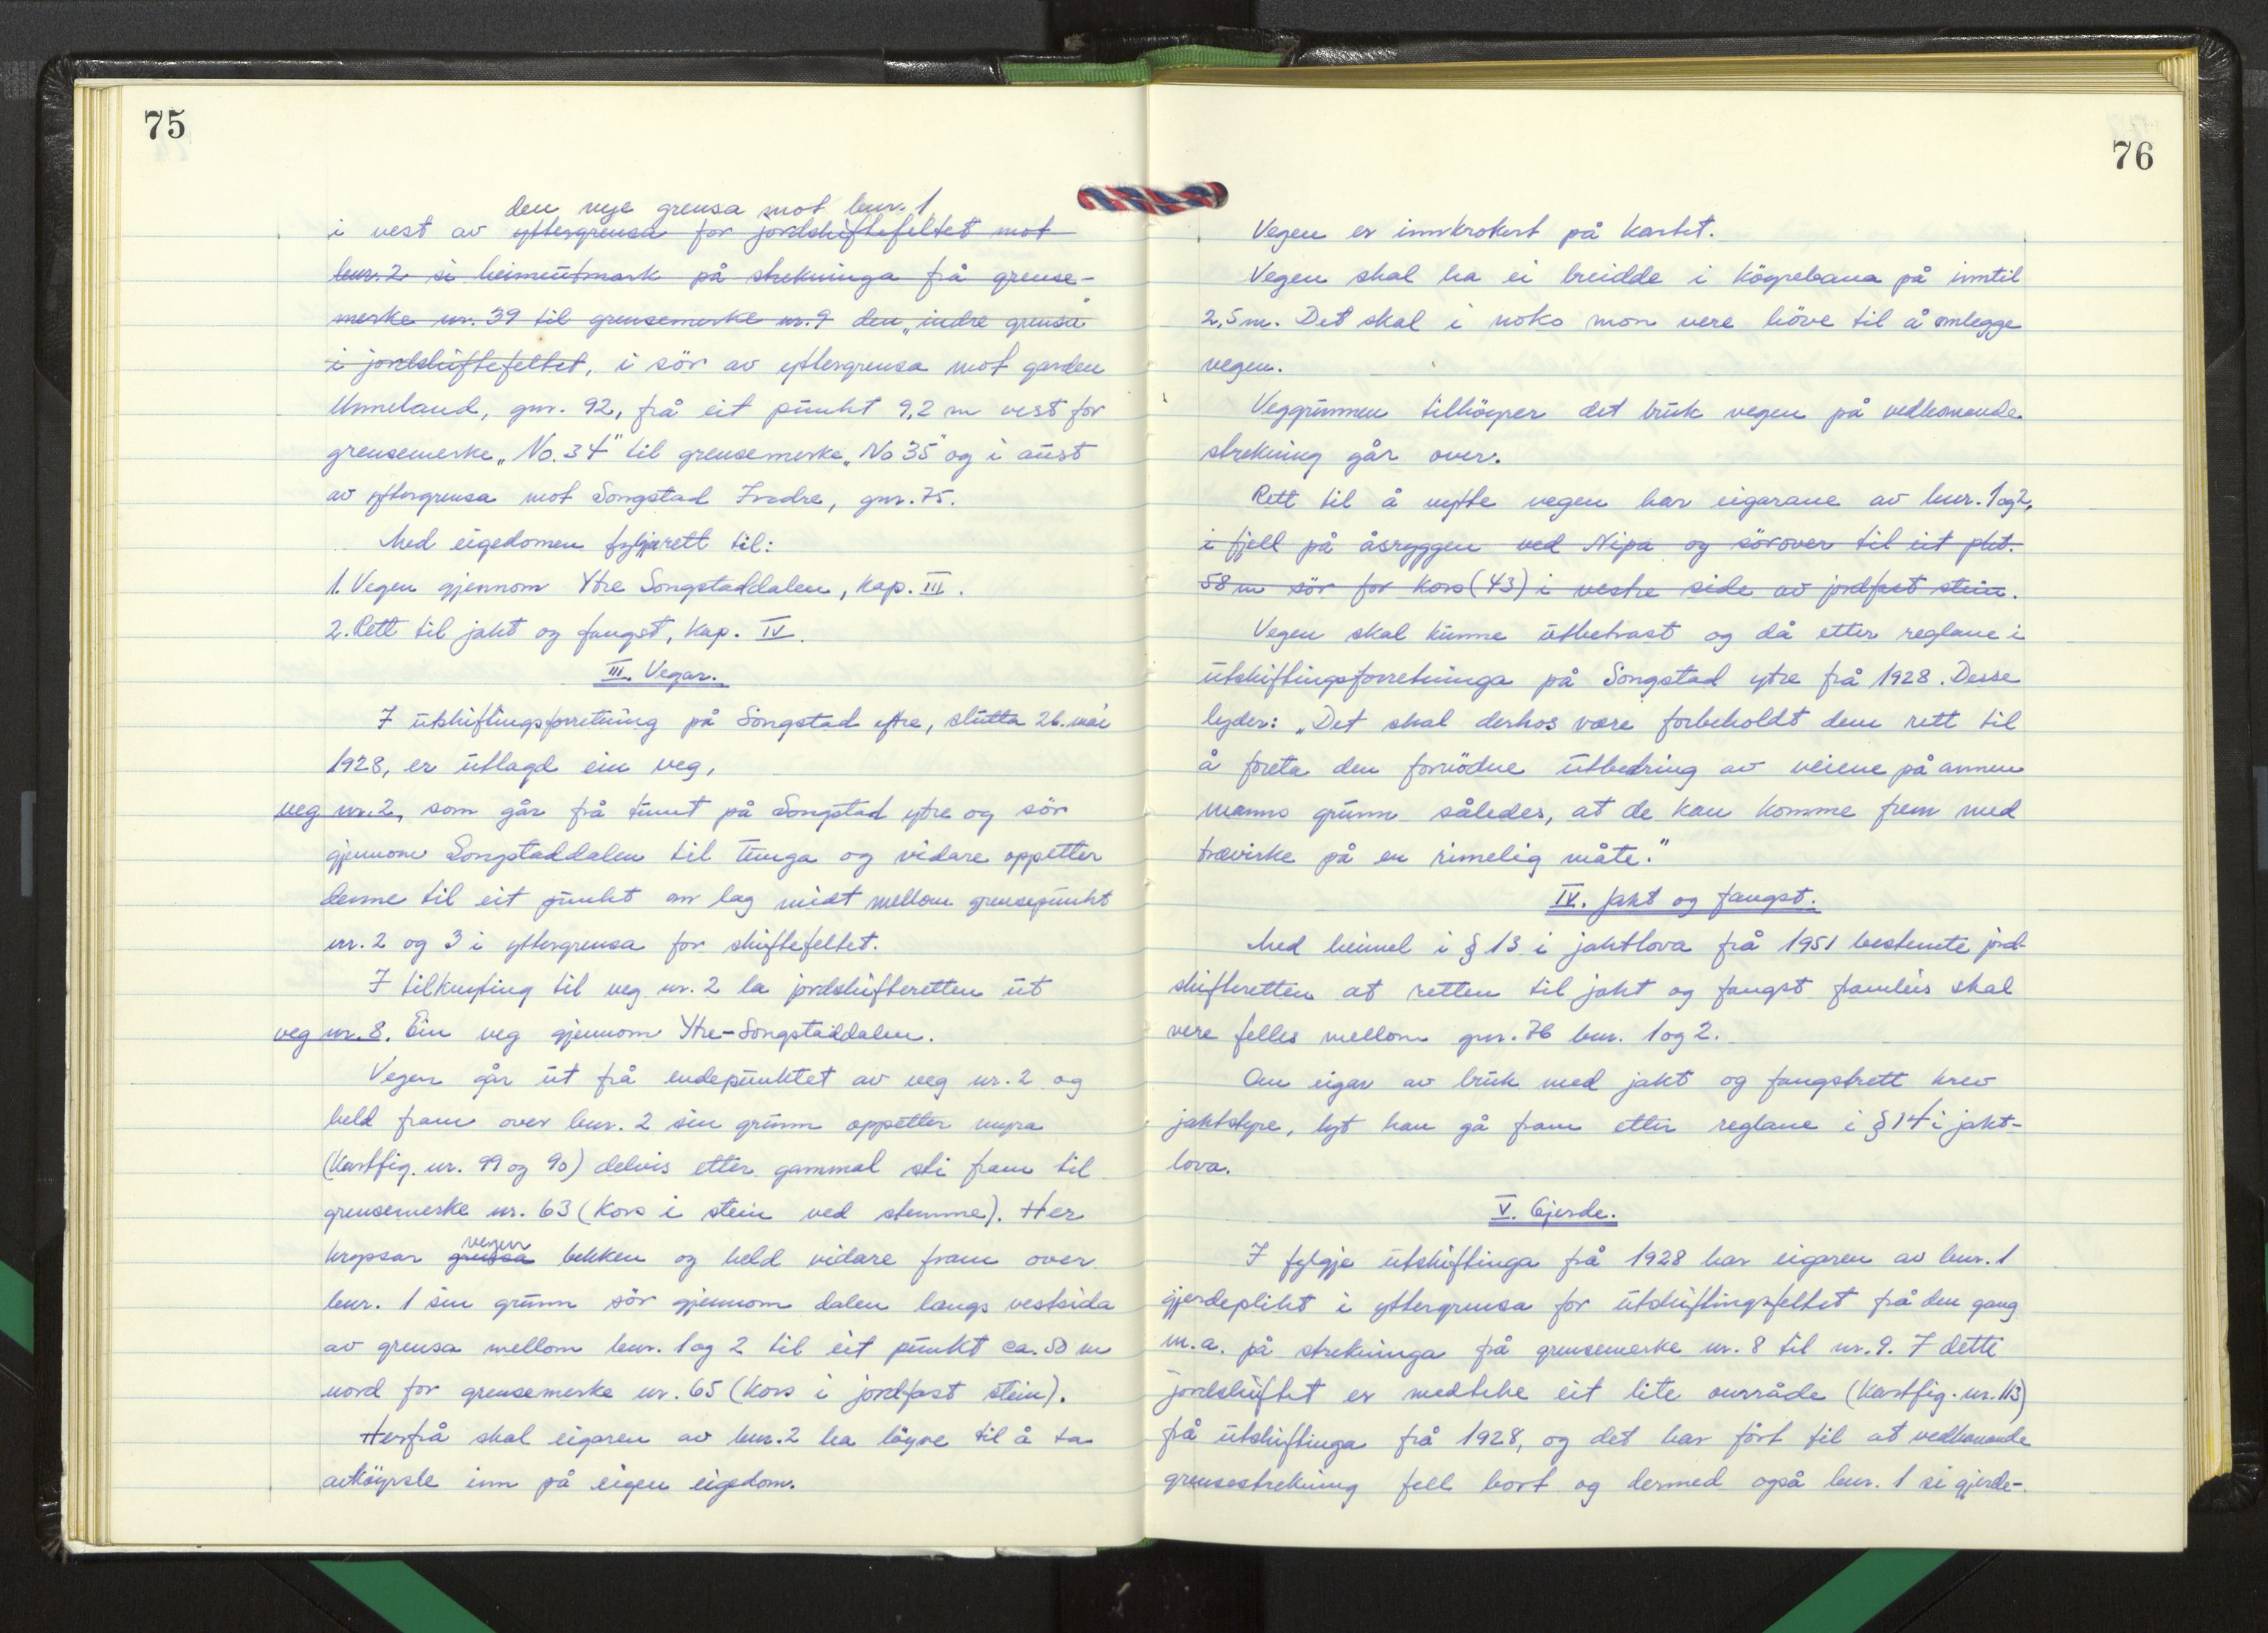 75
den nye grensa mot bnr. 1
i vest av yttergrensa for jordskiftefeltet mot
bnr. 2 si heimeutmark på strekninga frå grense-
merke nr. 39 til grensemerke nr. 9 den „indre grensa"
i jordskiftefeltet, i sör av yttergrensa mot garden
Unneland, gnr. 92, frå eit punkt 9,2 m vest for
grensemerke „No. 34" til grensemerke „No 35" og i aust
av yttergrensa mot Songstad Indre, gnr. 75.
Med eigedomen fylgjer rett til:
1. Vegen gjennom Ytre Songstaddalen, kap. III.
2. Rett til jakt og fangst, kap. IV.
III. Vegar.
I utskiftingsforretning på Songstad ytre, slutta 26. mai
1928, er utlagd ein veg,
veg nr. 2, som går frå tunet på Songstad ytre og sör
gjennom Songstaddalen til Tunga og vidare oppetter
denne til eit punkt om lag midt mellom grensepunkt
nr. 2 og 3 i yttergrensa for skiftefeltet.
I tilknyting til veg nr. 2 la jordskifteretten ut
veg nr. 8. Ein veg gjennom Ytre-Songstaddalen.
Vegen går ut frå endepunktet av veg nr. 2 og
held fram over bnr. 2 sin grunn oppetter myra
(Kartfig. nr. 99 og 90) delvis etter gammal sti fram til
grensemerke nr. 63 (kors i stein ved stemme). Her
vegen
kryssar grensa bekken og held vidare fram over
bnr. 1 sin grunn sör gjennom dalen langs vestsida
av grensa mellom bnr. 1 og 2 til eit punkt ca. 50 m
nord for grensemerke nr. 65 (kors i jordfast stein).
Herfrå skal eigaren av bnr. 2 ha löyve til å ta
avköyrsle inn på eigen eigedom.
76
Vegen er innkrokert på kartet.
Vegen skal ha ei breidde i köyrebana på inntil
2,5 m. Det skal i noko mon vere höve til å omlegge
vegen.
Veggrunnen tilhöyrer det bruk vegen på vedkomande
strekning går over.
Rett til å nytte vegen har eigarane av bnr. 1 og 2,
i fjell på åsryggen ved Nipa og sörover til eit pkt.
58 m sör for kors (43) i vestre side av jordfast stein.
Vegen skal kunne utbetrast og då etter reglane i
utskiftingsforretninga på Songstad ytre frå 1928. Desse
lyder: „Det skal derhos være forbeholdt dem rett til
å foreta den fornödne utbedring av veiene på annen
manns grunn således, at de kan komme frem med
trævirke på en rimelig måte."
IV. Jakt og fangst.
Med heimel i § 13 i jaktlova frå 1951 bestemte jord-
skifteretten at retten til jakt og fangst framleis skal
vere felles mellom gnr. 76 bnr. 1 og 2.
Om eigar av bruk med jakt og fangstrett krev
jaktstyre, lyt han gå fram etter reglane i § 14 i jakt-
lova.
V. Gjerde.
I fylgje utskiftinga frå 1928 har eigaren av bnr. 1
gjerdeplikt i yttergrensa for utskiftingsfeltet frå den gang
m.a. på strekninga frå grensemerke nr. 8 til nr. 9. I dette
jordskiftet er medteke eit lite område (Kartfig. nr. 113)
frå utskiftinga frå 1928, og det har fört til at vedkomande
grensestrekning fell bort og dermed også bnr. 1 si gjerde-